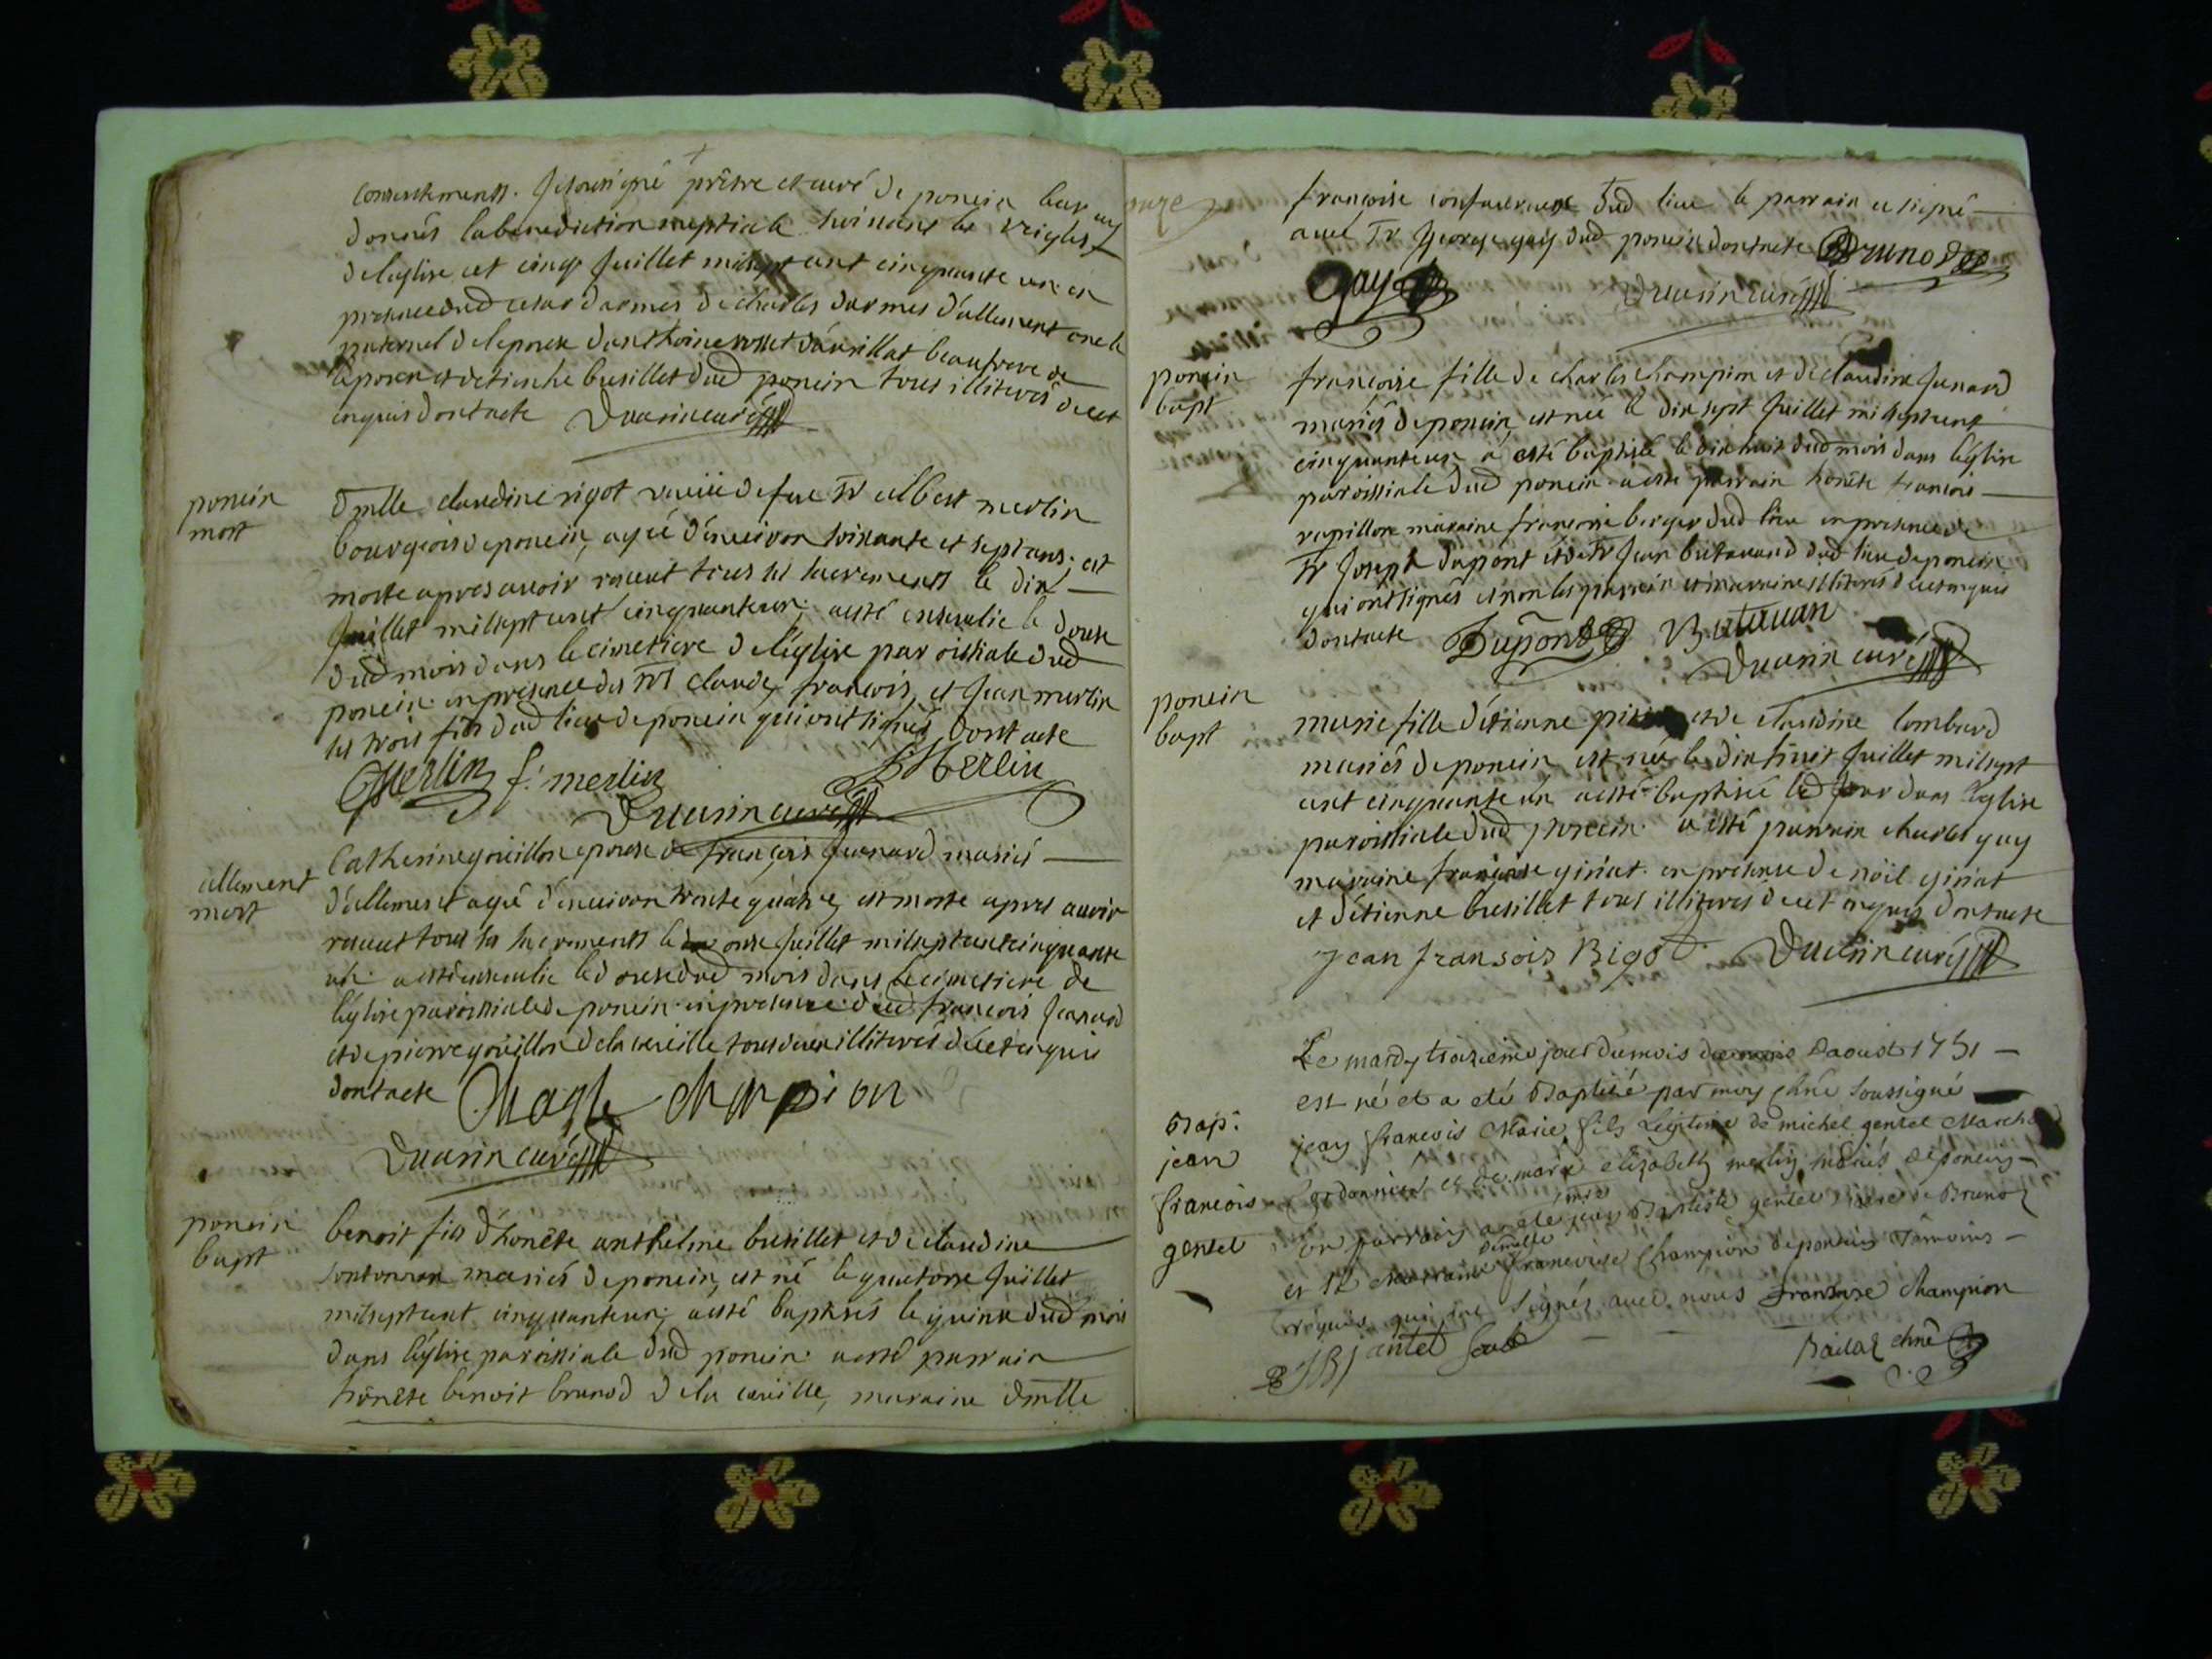 consentements. Je soussigné prêtre et curé de poncin leur ay
donnés la benediction nuptiale suivans les reigles
de leglise cet cinq Juillet mil sept cent cinquante un en
presence dud cesar darmes de charles darmes d'allement oncle
paternel de lepouse d'anthoine rosset beaufrere de
leposer et detienne busillet dud poncin tous illiterés de ce
enquis dont acte curé
poncin
mort
dmlle claudine rigot veuve de feu Sr albert merlin
bourgeois de poncin, agée d'environ soixante et sept ans, est
morte apres avoir receut tous les sacrements le dix
Juillet mil sept cent cinquanteun, a esté ensevelie le douse
dud mois dans le cimetiere de l'église paroissiale dud
poncin en presence des srs claude, francois, et Jean merlin
ses trois fils dud lieu de poncin qui ont signés dont acte
Merlin f. merlin Merlin
curé
allement
mort
Catherine goüillon epouse de françois Junard mariés
d'allement agée d'environ trente quatre, est morte apres avoir
receut tous les sacrements le onse Juillet mil sept cent cinquante
un a esté ensevelie led dud mois dans le cimetiere de
l'église paroissiale de poncin en presence dud françois Junard
et de pierre goüillon de la cueille tous deux illiterés de ce enquis
dont acte champion
curé
poncin
bapt
benoit fils d'honête anthelme busillet et de claudine
mariés de poncin, est né le quatorse Juillet
mil sept cent cinquanteun, a esté baptisés le quinse dud mois
dans l'église paroissiale dud poncin a esté parrain
honête benoit brunod de la cueille, maraine dmlle
françoise dud lieu le parrain a signé
avec Sr George gay dud poncin dont acte Brunod
Gay curé
poncin
bapt
françoise fille de charles champion et de claudine Junard
mariés de poncin est née le dix sept Juillet mil sept cent
cinquanteun a esté baptisée le dix huit dud mois dans l'église
paroissiale dud poncin a esté parrain honête francois
rapillon maraine francoise berger dud lieu en presence de
Sr Joseph dupont et de Sr Jean dud lieu de poncin
qui ont signés et non les parrain et marraine illiterés de ce enquis
dont acte Dupont
curé
poncin
bapt
marie fille d'étienne et de claudine lombard
mariés de poncin est née le dix huit Juillet mil sept
cent cinquante un a esté baptisée led Jour dans l'église
paroissiale dud poncin a esté parrain charles guy
maraine françoise giriat en presence de noël giriat
et d'étienne busillet tous illiterés de ce enquis dont acte
Jean fransois Rigot curé
Bap:
jean
francois
gentet
Le mardy troizieme jour du mois daoust 1751
est né et a eté Baptizé par moy soussigné
jean francois Marie fils Legitime de michel gentet March
Cordonnier et de marie elizabeth merlin mariés de poncin
Son parrain a eté jean Baptiste gentet
et sa Marraine Demlle francoise Champion de poncin Témoins
requis qui ont signés avec nous fransoise champion
JB gentet